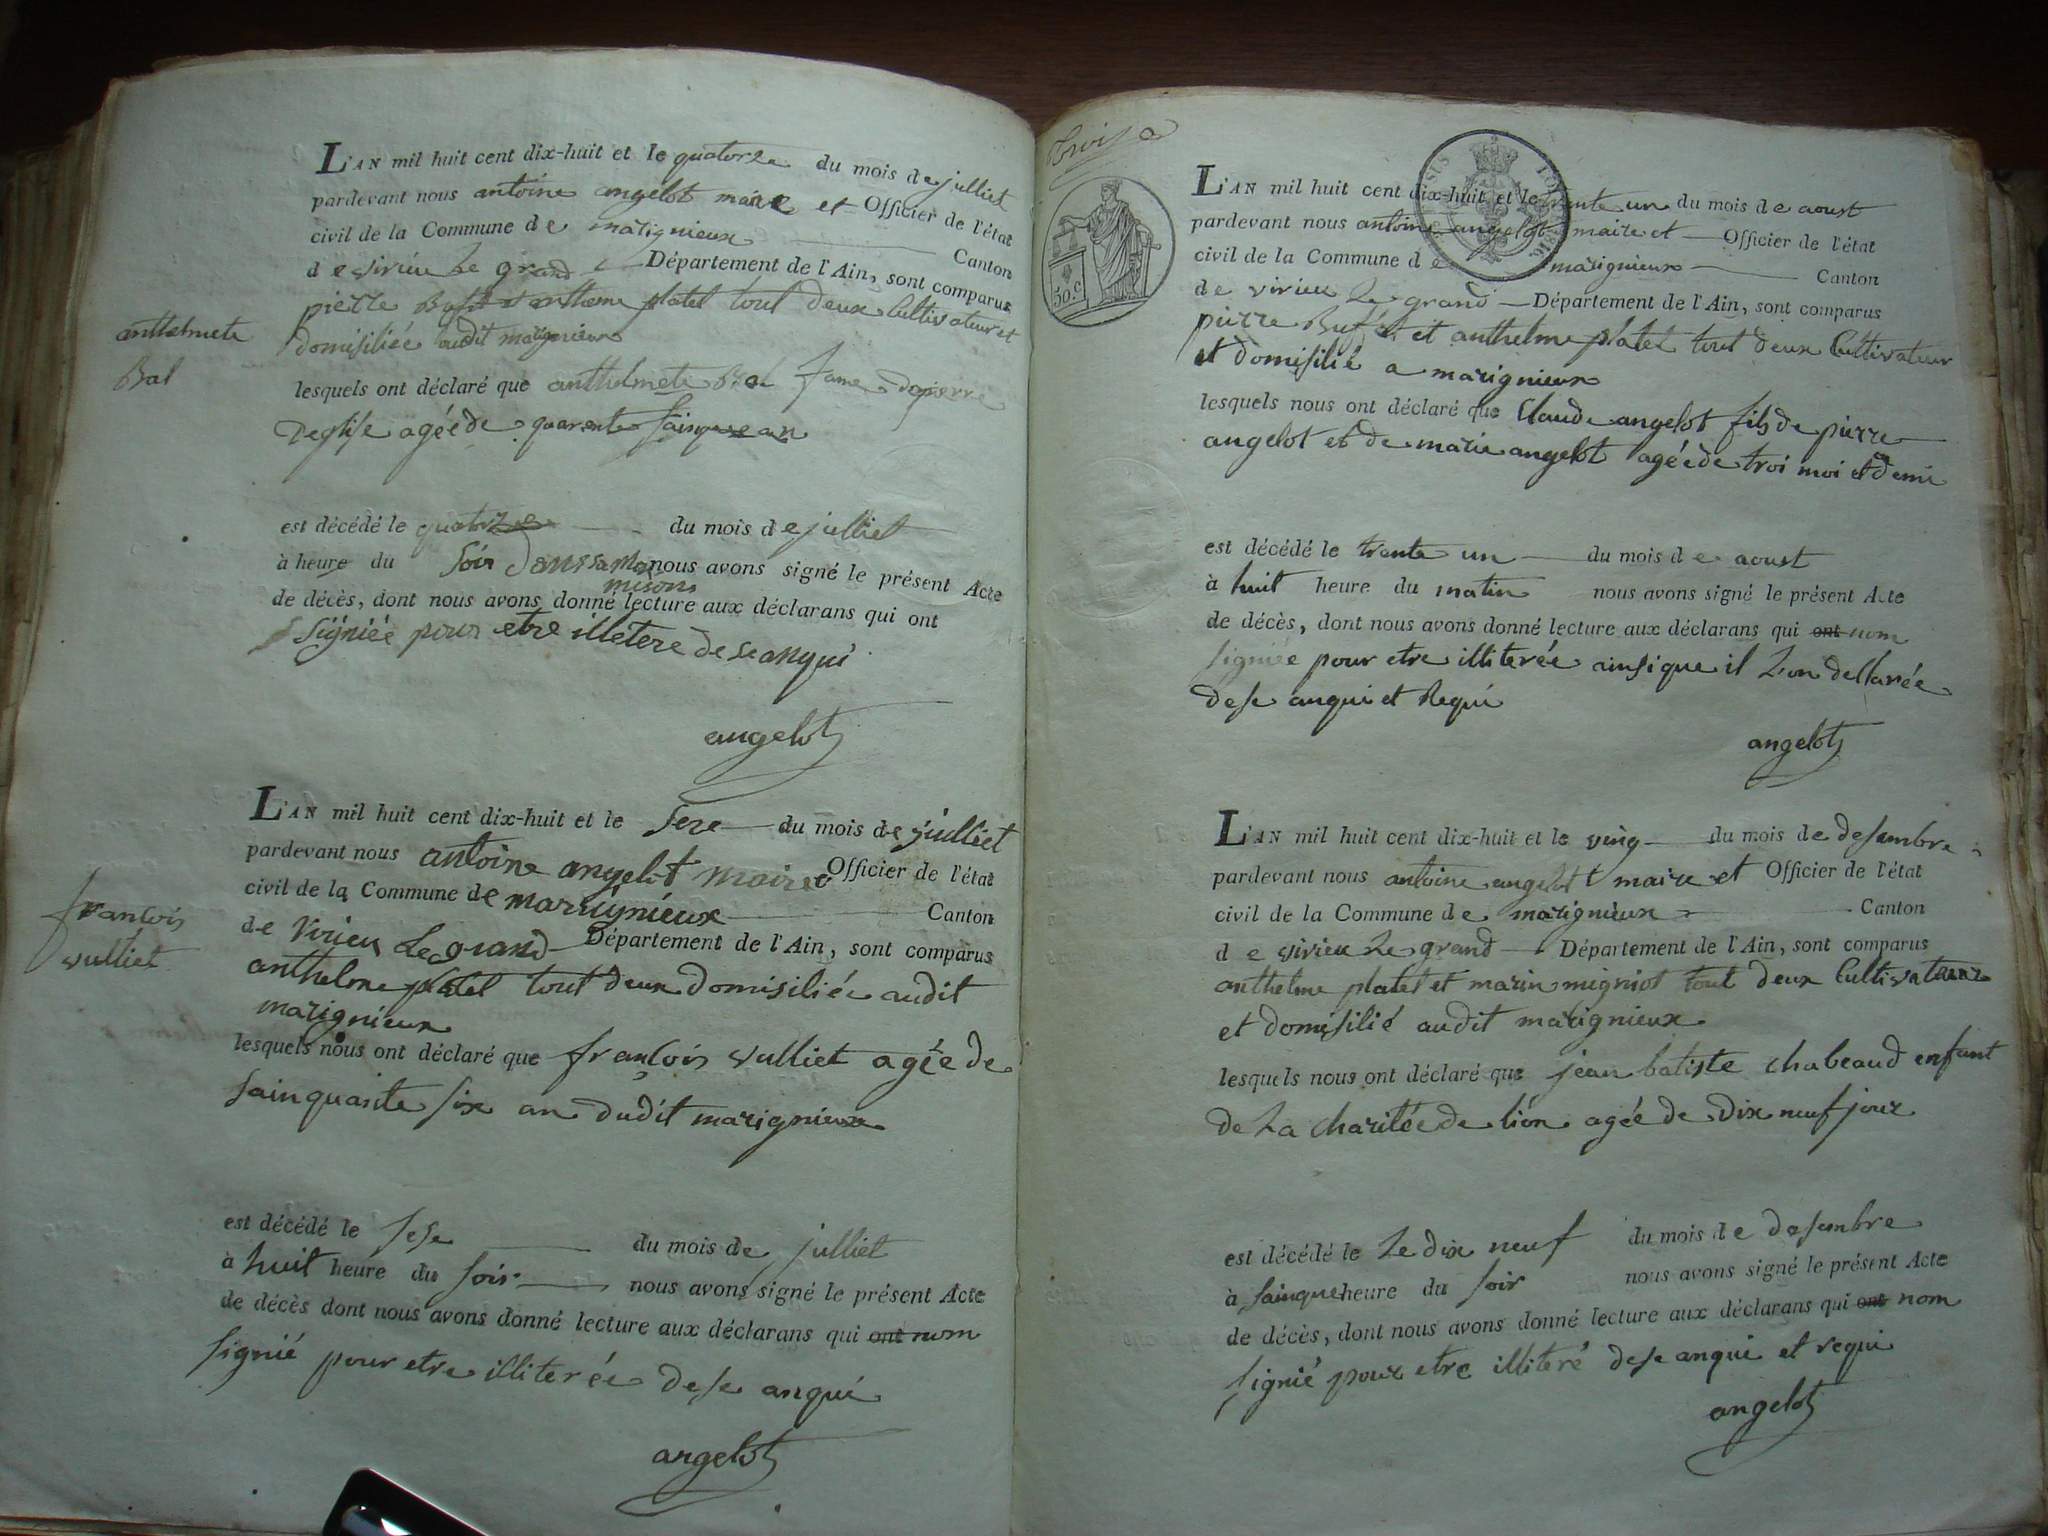 L'AN mil huit cent dix-huit et le quatorze du mois de julliet
pardevant nous antoine angelot maire et Officier de l'état
civil de la Commune de marignieux Canton
de virieu Le grand Département de l'Ain, sont comparus
pierre Bufet et antheme platel tout deux Cultivateur et
domisiliée audit marignieux
anthelmete
Bal
lesquels ont déclaré que anthelmete Bal fame de pierre
Deglise agéé de quarente sainque an
est décédé le quatorze du mois de julliet
à heure du soir dans sa nous avons signé le présent Acte
misons
de décès, dont nous avons donné lecture aux déclarans qui ont
signiéé pour etre illétere de se anqui
angelot
L'AN mil huit cent dix-huit et le seze du mois de julliet
pardevant nous antoine angelot maire Officier de l'état
civil de la Commune de marignieux Canton
de Virieu Le grand Département de l'Ain, sont comparus
anthelme platel tout deux domisiliée audit
marignieux
françois
vulliet
lesquels nous ont déclaré que françois vulliet agée de
sainquante six an dudit marignieux
est décédé le sese du mois de julliet
à huit heure du soir nous avons signé le présent Acte
de décès dont nous avons donné lecture aux déclarans qui ont nom
signié pour etre illiterée de se anqui
angelot
50 c
L'AN mil huit cent dix-huit et le trente un du mois de aoust
pardevant nous antoine angelot maire et Officier de l'état
civil de la Commune de marignieux Canton
de virieu Le grand Département de l'Ain, sont comparus
pierre Bufet et anthelme platel tout deux Cultivateur
et domisilié a marignieux
lesquels nous ont déclaré que Claude angelot fils de pierre
angelot et de marie angelot agéé de troi moi et demi
est décédé le trente un du mois de aoust
à huit heure du matin nous avons signé le présent Acte
de décès, dont nous avons donné lecture aux déclarans qui ont nom
signiée pour etre illiterée ainsi que il l'on dellarée
de se anqui et Requi
angelot
L'AN mil huit cent dix-huit et le ving du mois de desembre
pardevant nous antoine angelot maire et Officier de l'état
civil de la Commune de marignieux Canton
de virieu Le grand Département de l'Ain, sont comparus
anthelme platel et marin migniot tout deux Cultivateur
et domisilié audit marignieux
lesquels nous ont déclaré que jean batiste chabeaud enfant
de La charitée de lion agée de Dix neuf jour
est décédé le Le dix neuf du mois de desembre
à sainque heure du soir nous avons signé le présent Acte
de décès, dont nous avons donné lecture aux déclarans qui ont nom
signié pour etre illiteré de se anqui et requi
angelot